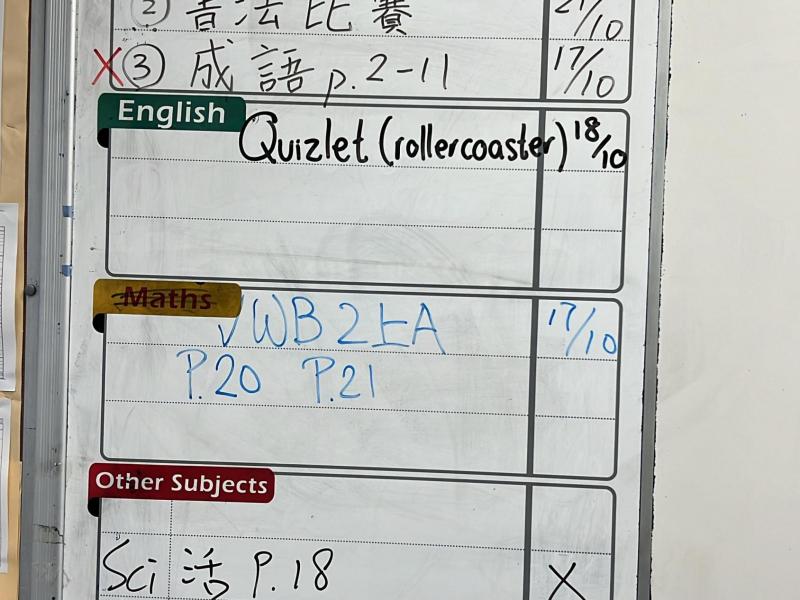 ② 書法比賽 21/10
X ③ 成語 p.2-11 17/10
English
Quizlet (rollercoaster) 18/10
Maths
√WB 2上A 17/10
P.20 P.21
Other Subjects
Sci 活 P.18 X